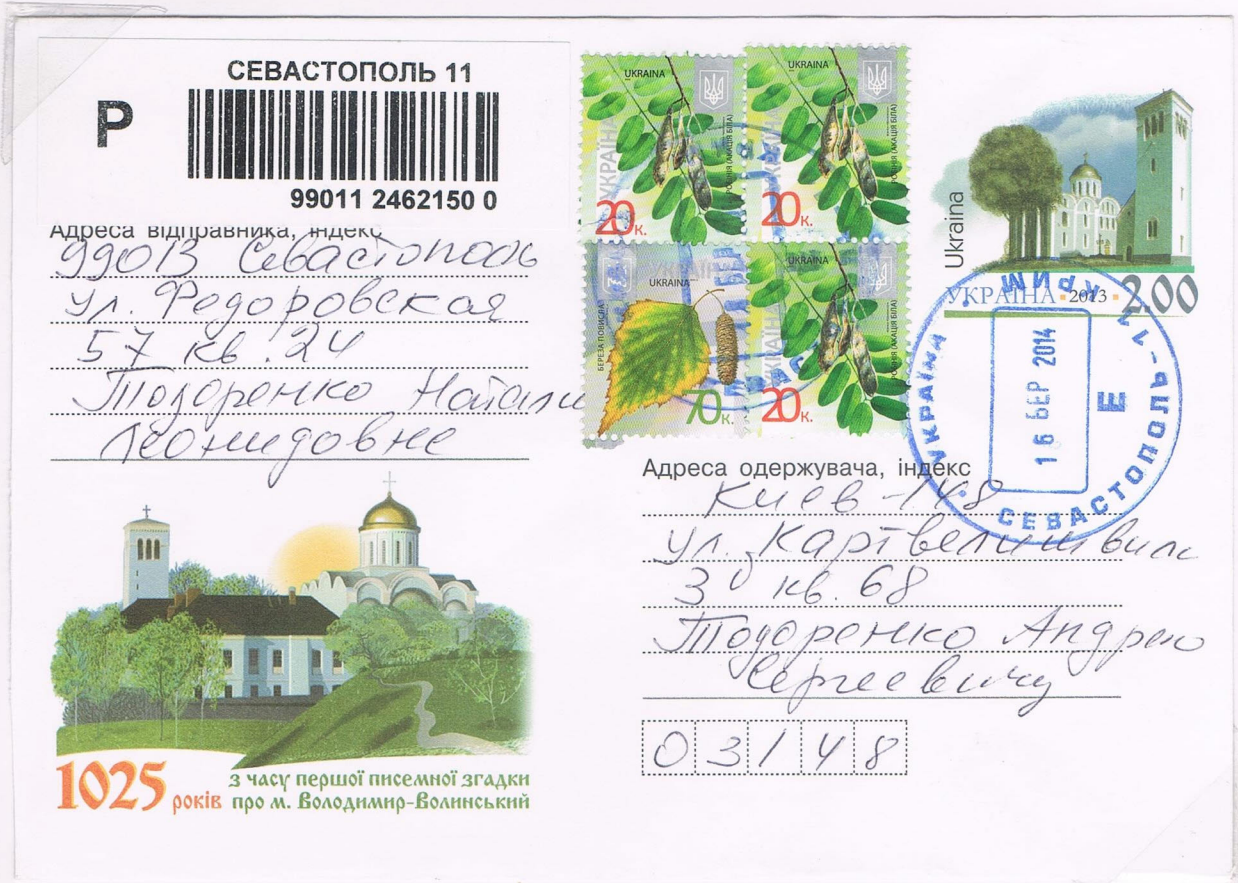 СЕВАСТОПОЛЬ 11
Р
99011 2462150 0
Адреса відправника, індекс
99013 Севастополь
ул. Федоровская
57 кв. 24
Тодоренко Натали
Леонидовне
UKRAINA
УКРАЇНА
РОБІНІЯ (АКАЦІЯ БІЛА)
20 к.
UKRAINA
УКРАЇНА
РОБІНІЯ (АКАЦІЯ БІЛА)
20 к.
UKRAINA
УКРАЇНА
БЕРЕЗА ПОВИСЛА
70 к.
UKRAINA
УКРАЇНА
РОБІНІЯ (АКАЦІЯ БІЛА)
20 к.
Ukraina
УКРАЇНА • 2013 • 2.00
УКРАЇНА
КРИМ
СЕВАСТОПОЛЬ-11
16 БЕР 2014
Е
Адреса одержувача, індекс
Киев-148
ул. Картвелишвили
3 кв. 68
Тодоренко Андрею
Сергеевичу
03148
1025 років
з часу першої писемної згадки
про м. Володимир-Волинський